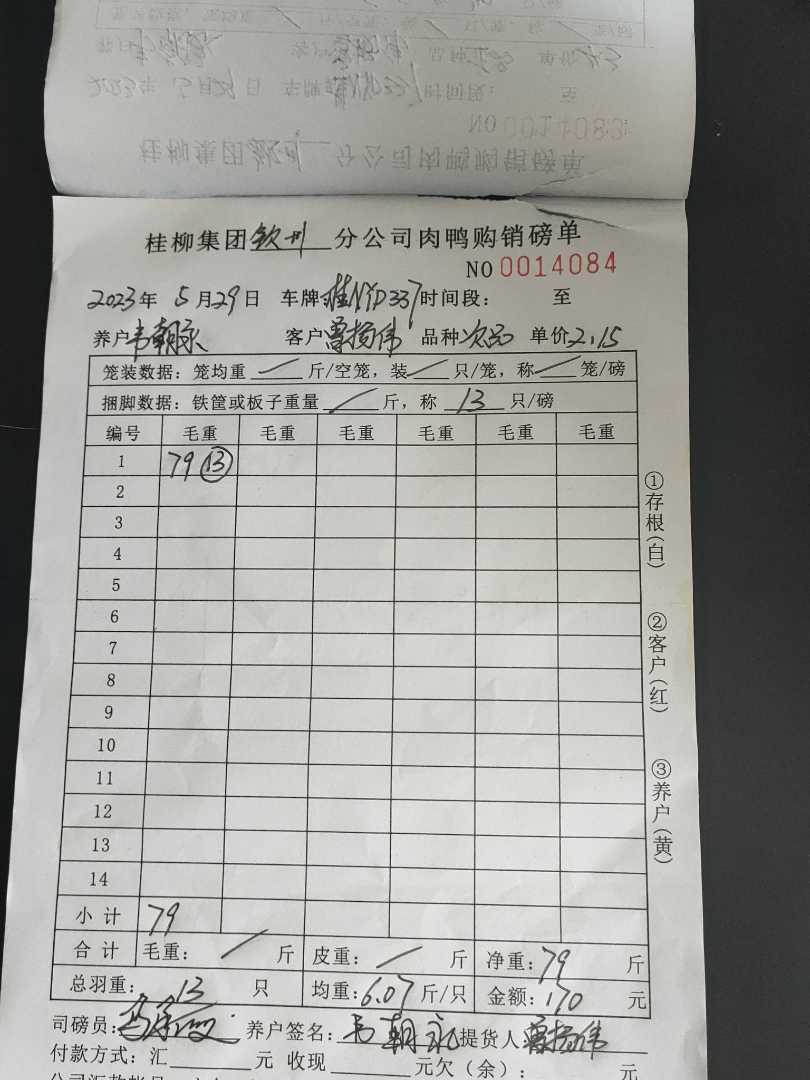 桂柳集团钦州分公司肉鸭购销磅单
NO 0014084
2023年5月29日 车牌桂NYD337 时间段: 至
养户韦朝永 客户曾扬伟 品种次品 单价2.15
笼装数据:笼均重/斤/空笼,装/只/笼,称/笼/磅
捆脚数据:铁筐或板子重量/斤,称13只/磅
编号 毛重 毛重 毛重 毛重 毛重 毛重
1 79 ⑬
2
3
4
5
6
7
8
9
10
11
12
13
14
小计 79
合计 毛重:/斤 皮重:/斤 净重:79斤
总羽重:13只 均重:6.07斤/只 金额:170元
司磅员: 养户签名:韦朝永 提货人曾扬伟
付款方式:汇____元 收现____元欠(余):____元
①存根(白)
②客户(红)
③养户(黄)